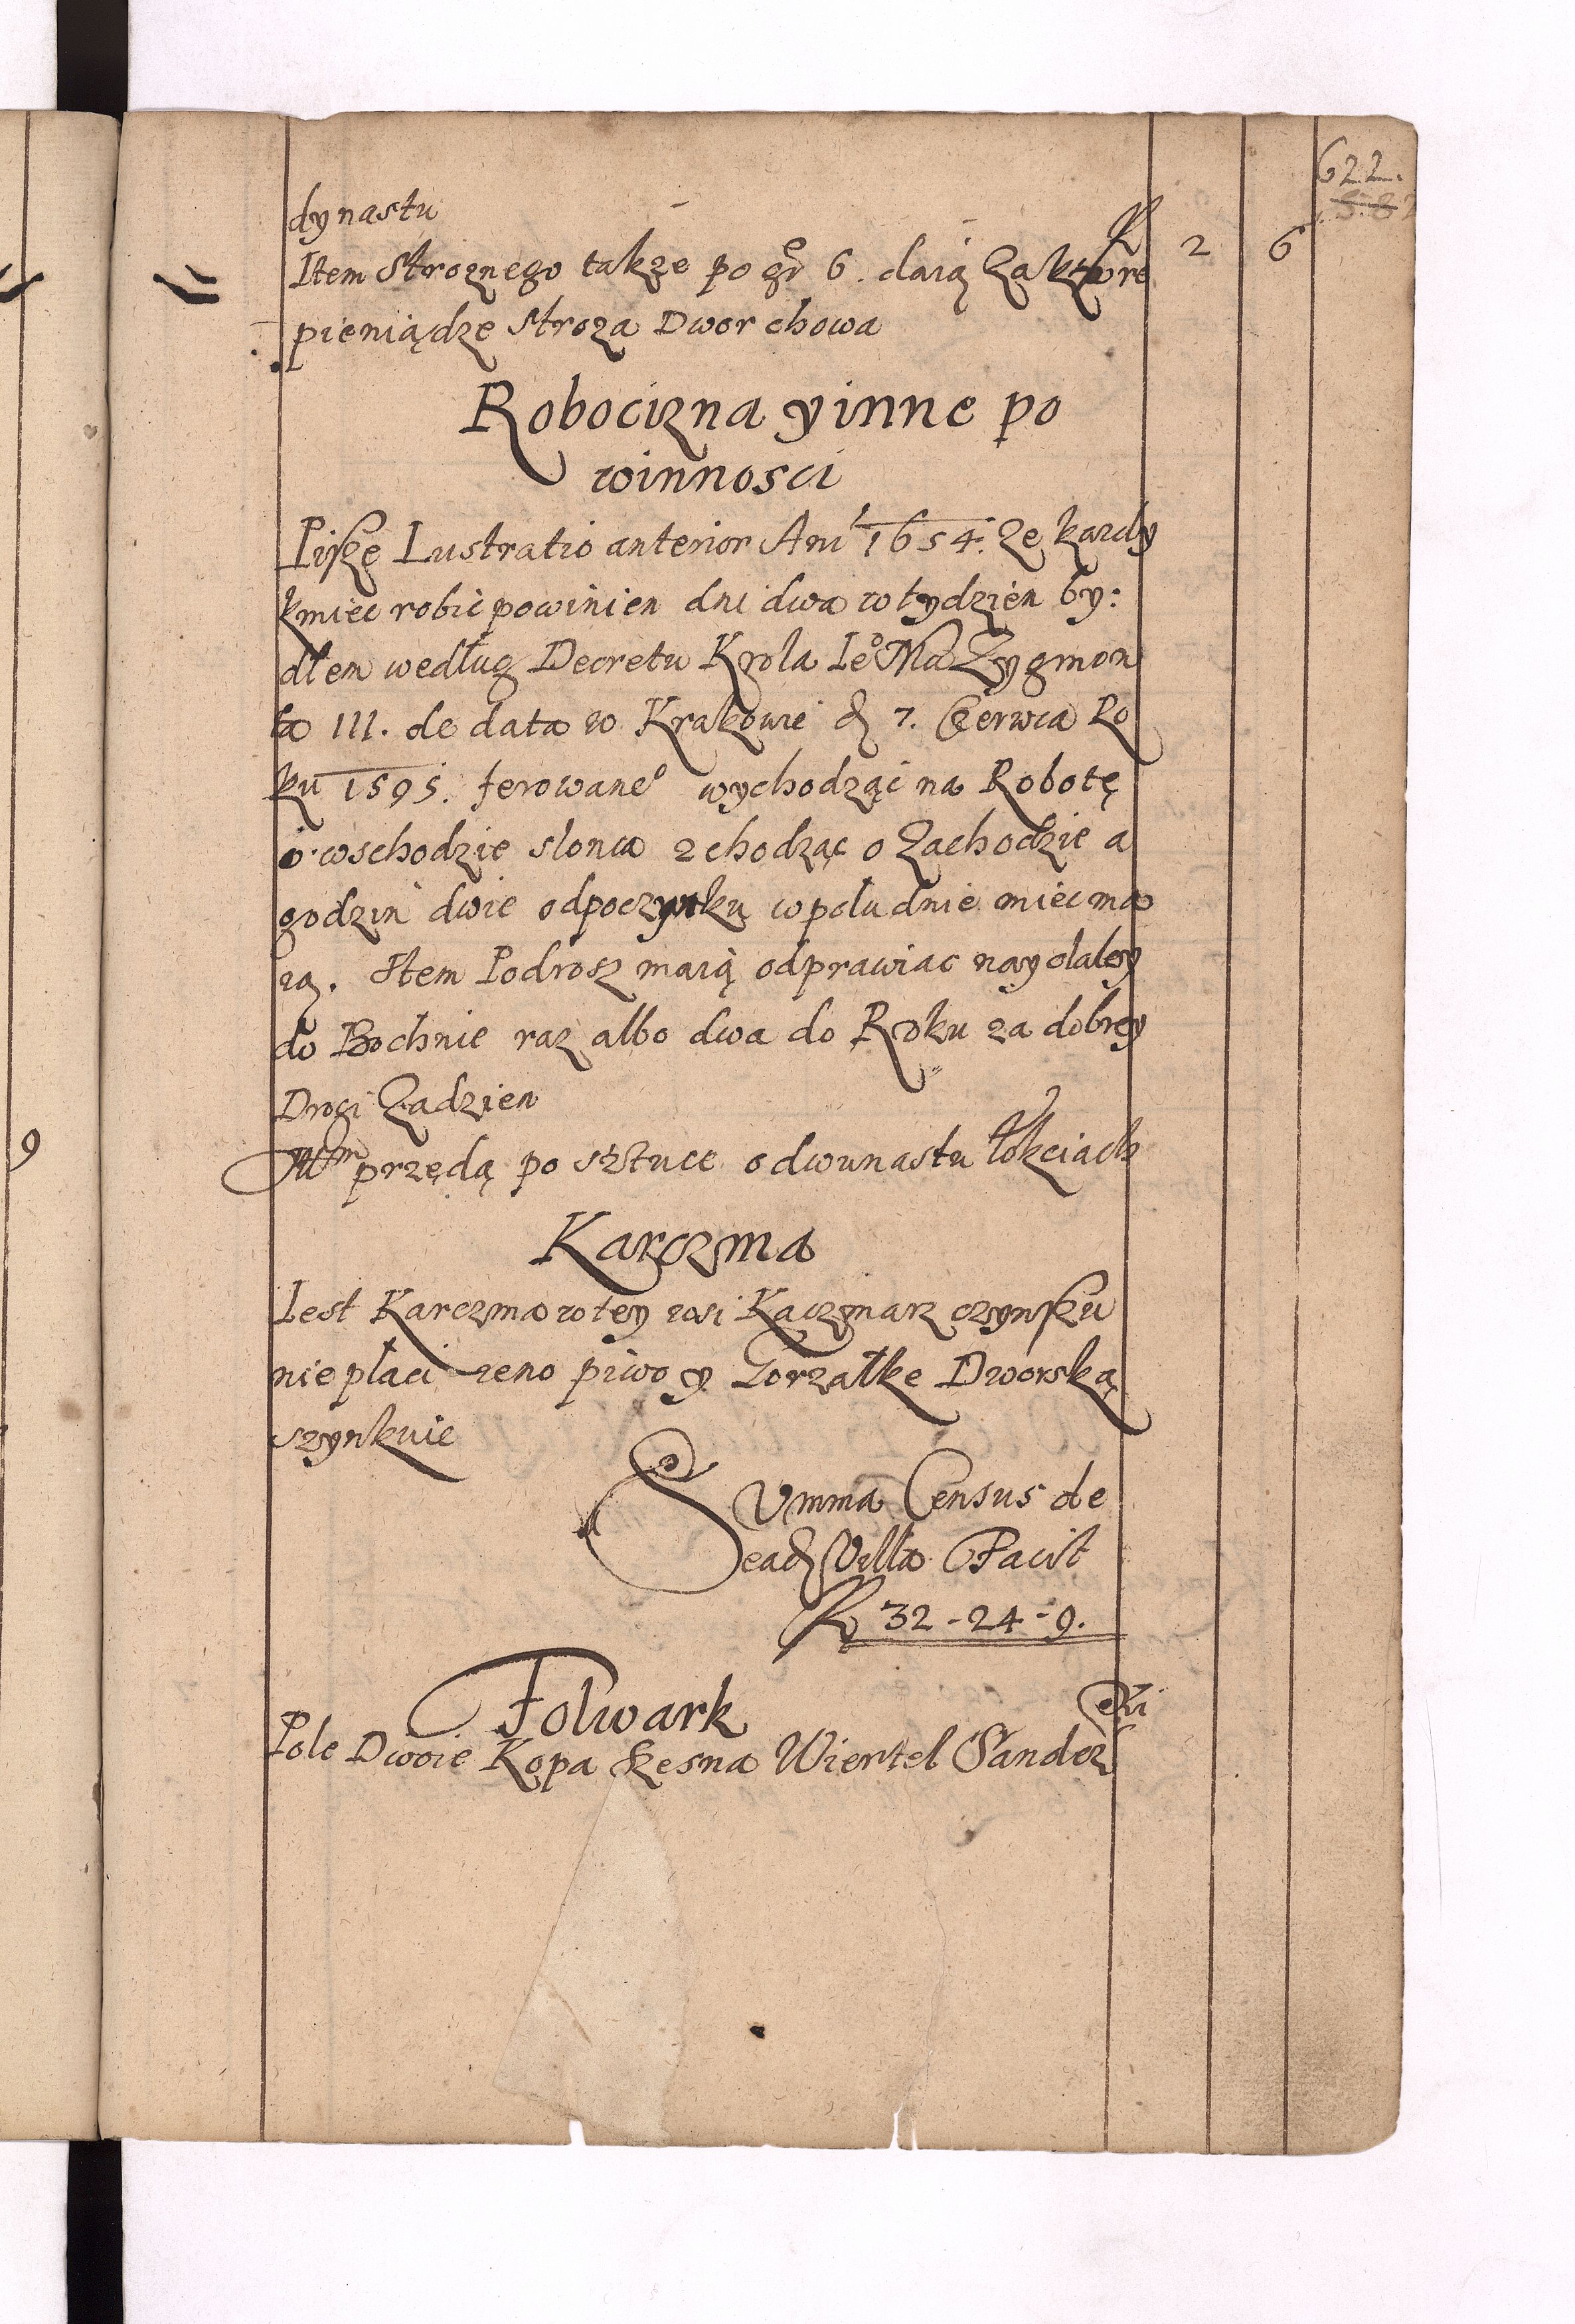 622.
dynastu
Item Stroznego takze po gr 6. daią Za ktore R 2 6
pieniądze stroza Dwor chowa
Robocizna y inne po
winnosci
Pisze Lustratio anterior Ani 1654. Ze kazdy
kmiec robic powinien dni dwa w tydzien by:
dłem według Decretu Krola Ieo Ma Zygmon
ta III. de data w Krakowie d 7. Czerwca Ro
ku 1595. ferowaneo wychodząc na Robotę
o wschodzie slonca zchodząc o Zachodzie a
godzin dwie odpoczynku w poludnie miec ma
ią. Item Podrosz maią odprawiac naydaley
do Bochnie raz albo dwa do Roku za dobrey
Drogi Zadzien
Item przędą po sztuce o dwunastu łokciach
Karczma
Iest Karczma w tey wsi Kaczmarz czynszu
nie płaci ieno piwo y Gorzałke Dworską
szynkuie
Summa Census de
ead Villa Facit
R 32-24-9.
Folwark
Pole Dwoie Kopa szesna Wiertel Sandec
ski
9